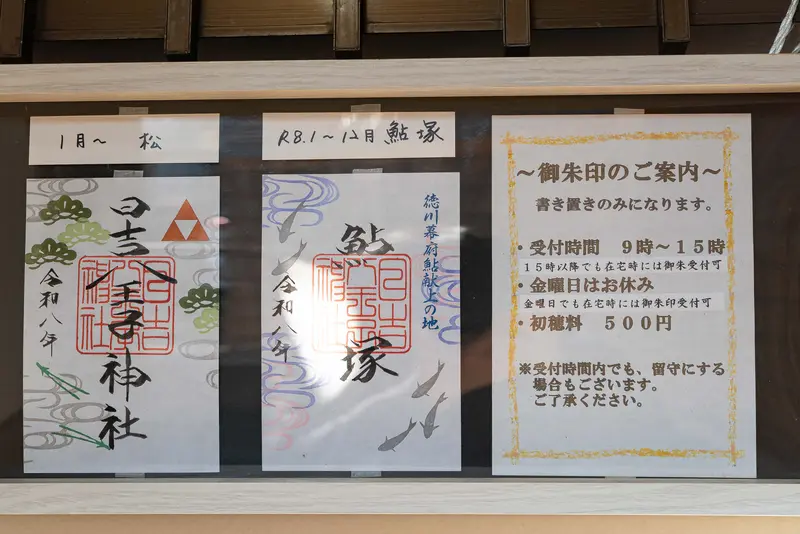 1月〜 松
日吉八王子神社
令和八年
R8.1〜12月 鮎塚
徳川幕府鮎献上の地
鮎塚
令和八年
〜御朱印のご案内〜
書き置きのみになります。
・受付時間 9時〜15時
15時以降でも在宅時には御朱受付可
・金曜日はお休み
金曜日でも在宅時には御朱印受付可
・初穂料 500円
※受付時間内でも、留守にする
場合もございます。
ご了承ください。